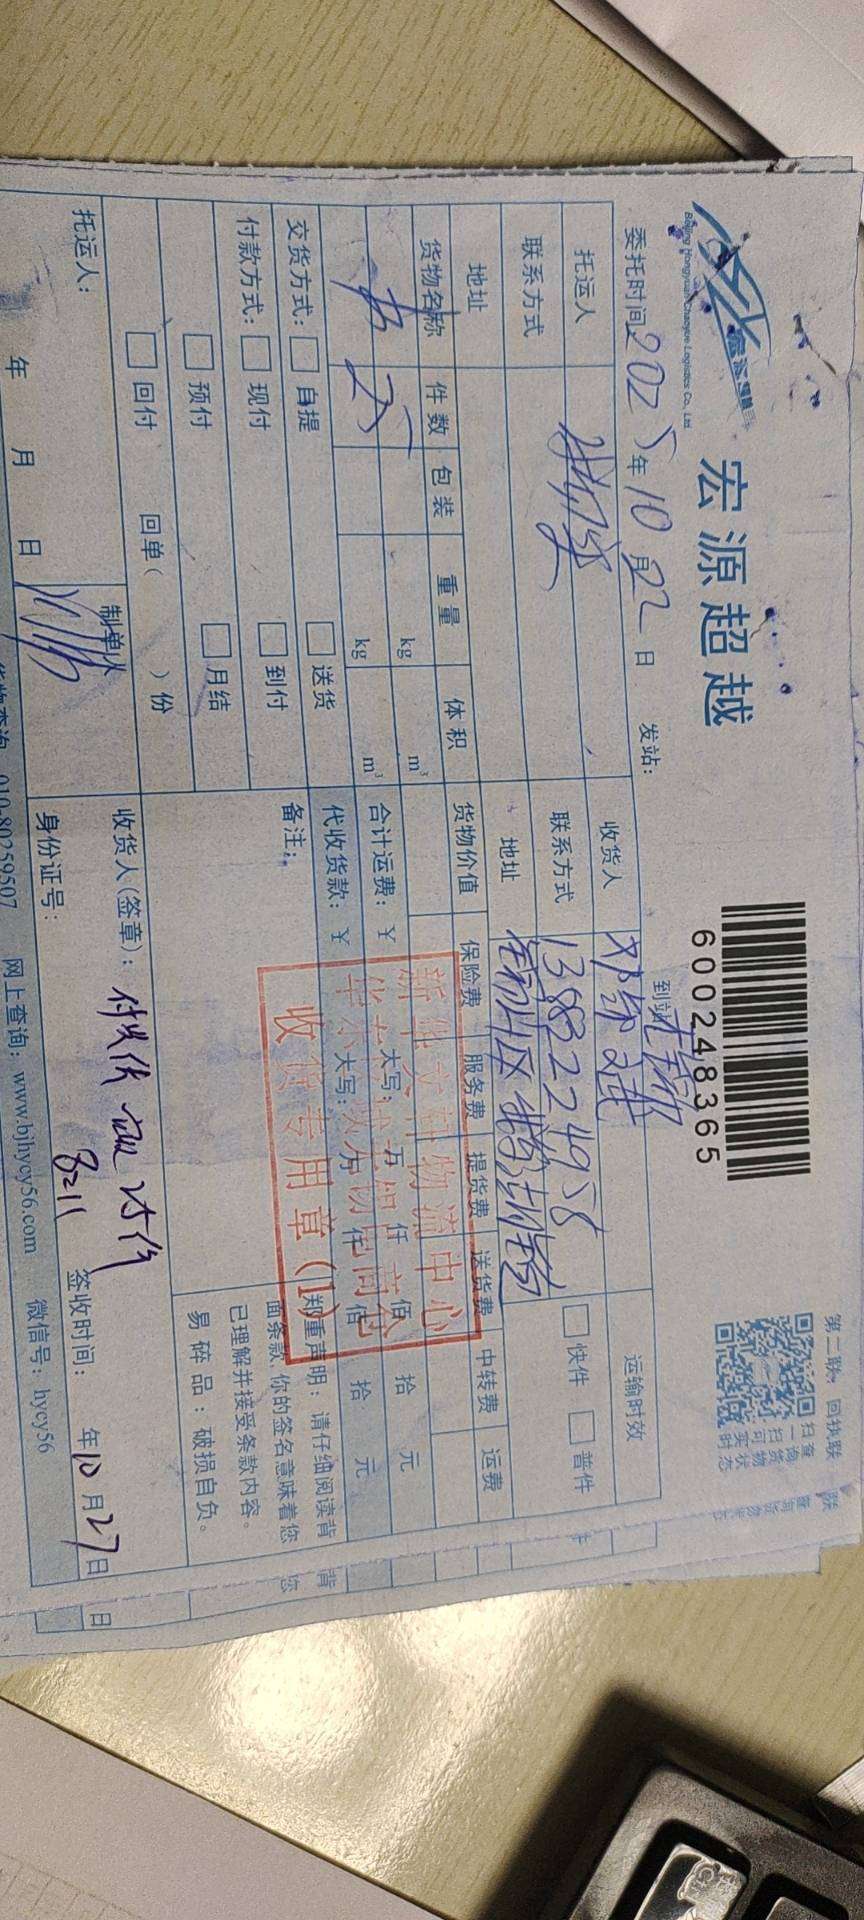 Beijing Hongyuan Chaoyue Logistics Co., Ltd.
宏源超越
600248365
第二联：回执联
扫一扫可实时
查询货物状态
委托时间 2025年10月22日 发站： 到站
托运人 收货人 运输时效
联系方式 联系方式 □快件 □普件
地址 地址
货物名称 件数 包装 重量 体积 货物价值 保险费 服务费 提货费 送货费 中转费 运费
书 25 kg m³
kg m³
合计运费：￥ 大写： 万 仟 佰 拾 元
代收货款：￥ 大写： 万 仟 佰 拾 元
交货方式：□自提 □送货
付款方式：□现付 □到付
□预付 □月结
□回付 回单（ ）份
备注：
郑重声明：请仔细阅读背
面条款，你的签名意味着您
已理解并接受条款内容。
易碎品：破损自负。
新华文轩物流中心
收货专用章(1)
托运人： 制单人
年 月 日
收货人(签章)：
8211
身份证号： 签收时间： 年10月27日
货物查询：010-80259507 网上查询：www.bjhycy56.com 微信号：hycy56